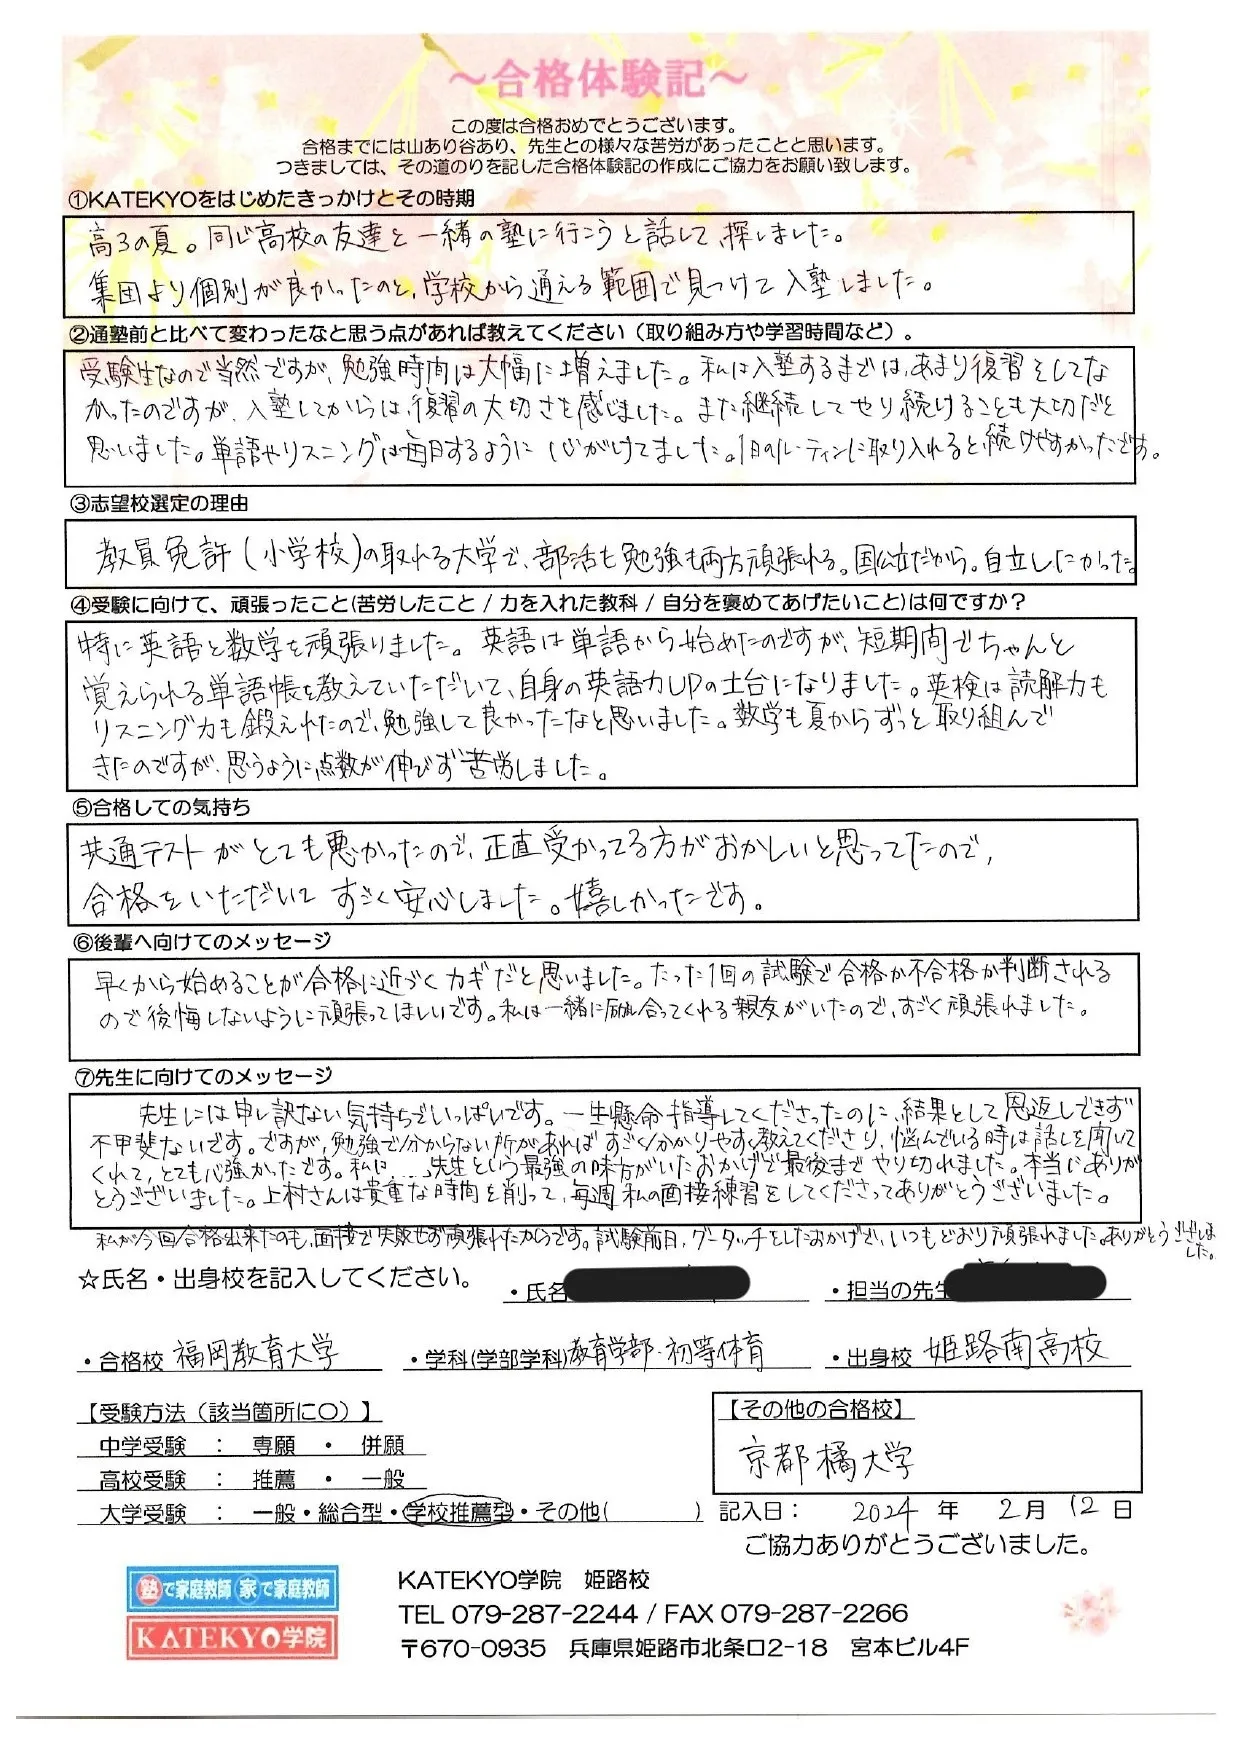 ～合格体験記～
この度は合格おめでとうございます。
合格までには山あり谷あり、先生との様々な苦労があったことと思います。
つきましては、その道のりを記した合格体験記の作成にご協力をお願い致します。
①KATEKYOをはじめたきっかけとその時期
高3の夏。同じ高校の友達と一緒の塾に行こうと話して、探しました。
集団より個別が良かったのと、学校から通える範囲で見つけて入塾しました。
②通塾前と比べて変わったなと思う点があれば教えてください（取り組み方や学習時間など）。
受験生なので当然ですが、勉強時間は大幅に増えました。私は入塾するまでは、あまり復習をしてな
かったのですが、入塾してからは、復習の大切さを感じました。また継続してやり続けることも大切だと
思いました。単語やリスニングは毎日するように心がけてました。1日のルーティンに取り入れると、続けやすかったです。
③志望校選定の理由
教員免許（小学校）の取れる大学で、部活も勉強も両方頑張れる。国公立だから。自立したかった。
④受験に向けて、頑張ったこと(苦労したこと / 力を入れた教科 / 自分を褒めてあげたいこと)は何ですか？
特に英語と数学を頑張りました。英語は単語から始めたのですが、短期間でちゃんと
覚えられる単語帳を教えていただいて、自身の英語力UPの土台になりました。英検は読解力も
リスニング力も鍛えれたので、勉強して良かったなと思いました。数学も夏からずっと取り組んで
きたのですが、思うように点数が伸びず苦労しました。
⑤合格しての気持ち
共通テストがとても悪かったので、正直受かってる方がおかしいと思ってたので、
合格をいただいてすごく安心しました。嬉しかったです。
⑥後輩へ向けてのメッセージ
早くから始めることが合格に近づくカギだと思いました。たった1回の試験で合格か不合格か判断される
ので後悔しないように頑張ってほしいです。私は一緒に励ん合ってくれる親友がいたので、すごく頑張れました。
⑦先生に向けてのメッセージ
先生には申し訳ない気持ちでいっぱいです。一生懸命指導してくださったのに、結果として恩返しできず
不甲斐ないです。ですが、勉強で分からない所があればすごく分かりやすく教えてくださり、悩んでいる時は話しを聞いて
くれて、とても心強かったです。私は……先生という最強の味方がいたおかげで最後までやり切れました。本当にありが
とうございました。上村さんは貴重な時間を削って、毎週私の面接練習をしてくださってありがとうございました。
私が今回合格出来たのも、面接で失敗せず頑張れたからです。試験前日、グータッチをしたおかげで、いつもどおり頑張れました。ありがとうございま
した。
☆氏名・出身校を記入してください。
・氏名 ・担当の先生
・合格校 福岡教育大学 ・学科(学部学科)教育学部・初等体育 ・出身校 姫路南高校
【受験方法（該当箇所に〇）】 【その他の合格校】
中学受験 ： 専願 ・ 併願
京都橘大学
高校受験 ： 推薦 ・ 一般
大学受験 ： 一般・総合型・学校推薦型・その他( ) 記入日： 2024 年 2 月 12 日
ご協力ありがとうございました。
塾で家庭教師 家で家庭教師
KATEKYO学院
KATEKYO学院 姫路校
TEL 079-287-2244 / FAX 079-287-2266
〒670-0935 兵庫県姫路市北条口2-18 宮本ビル4F